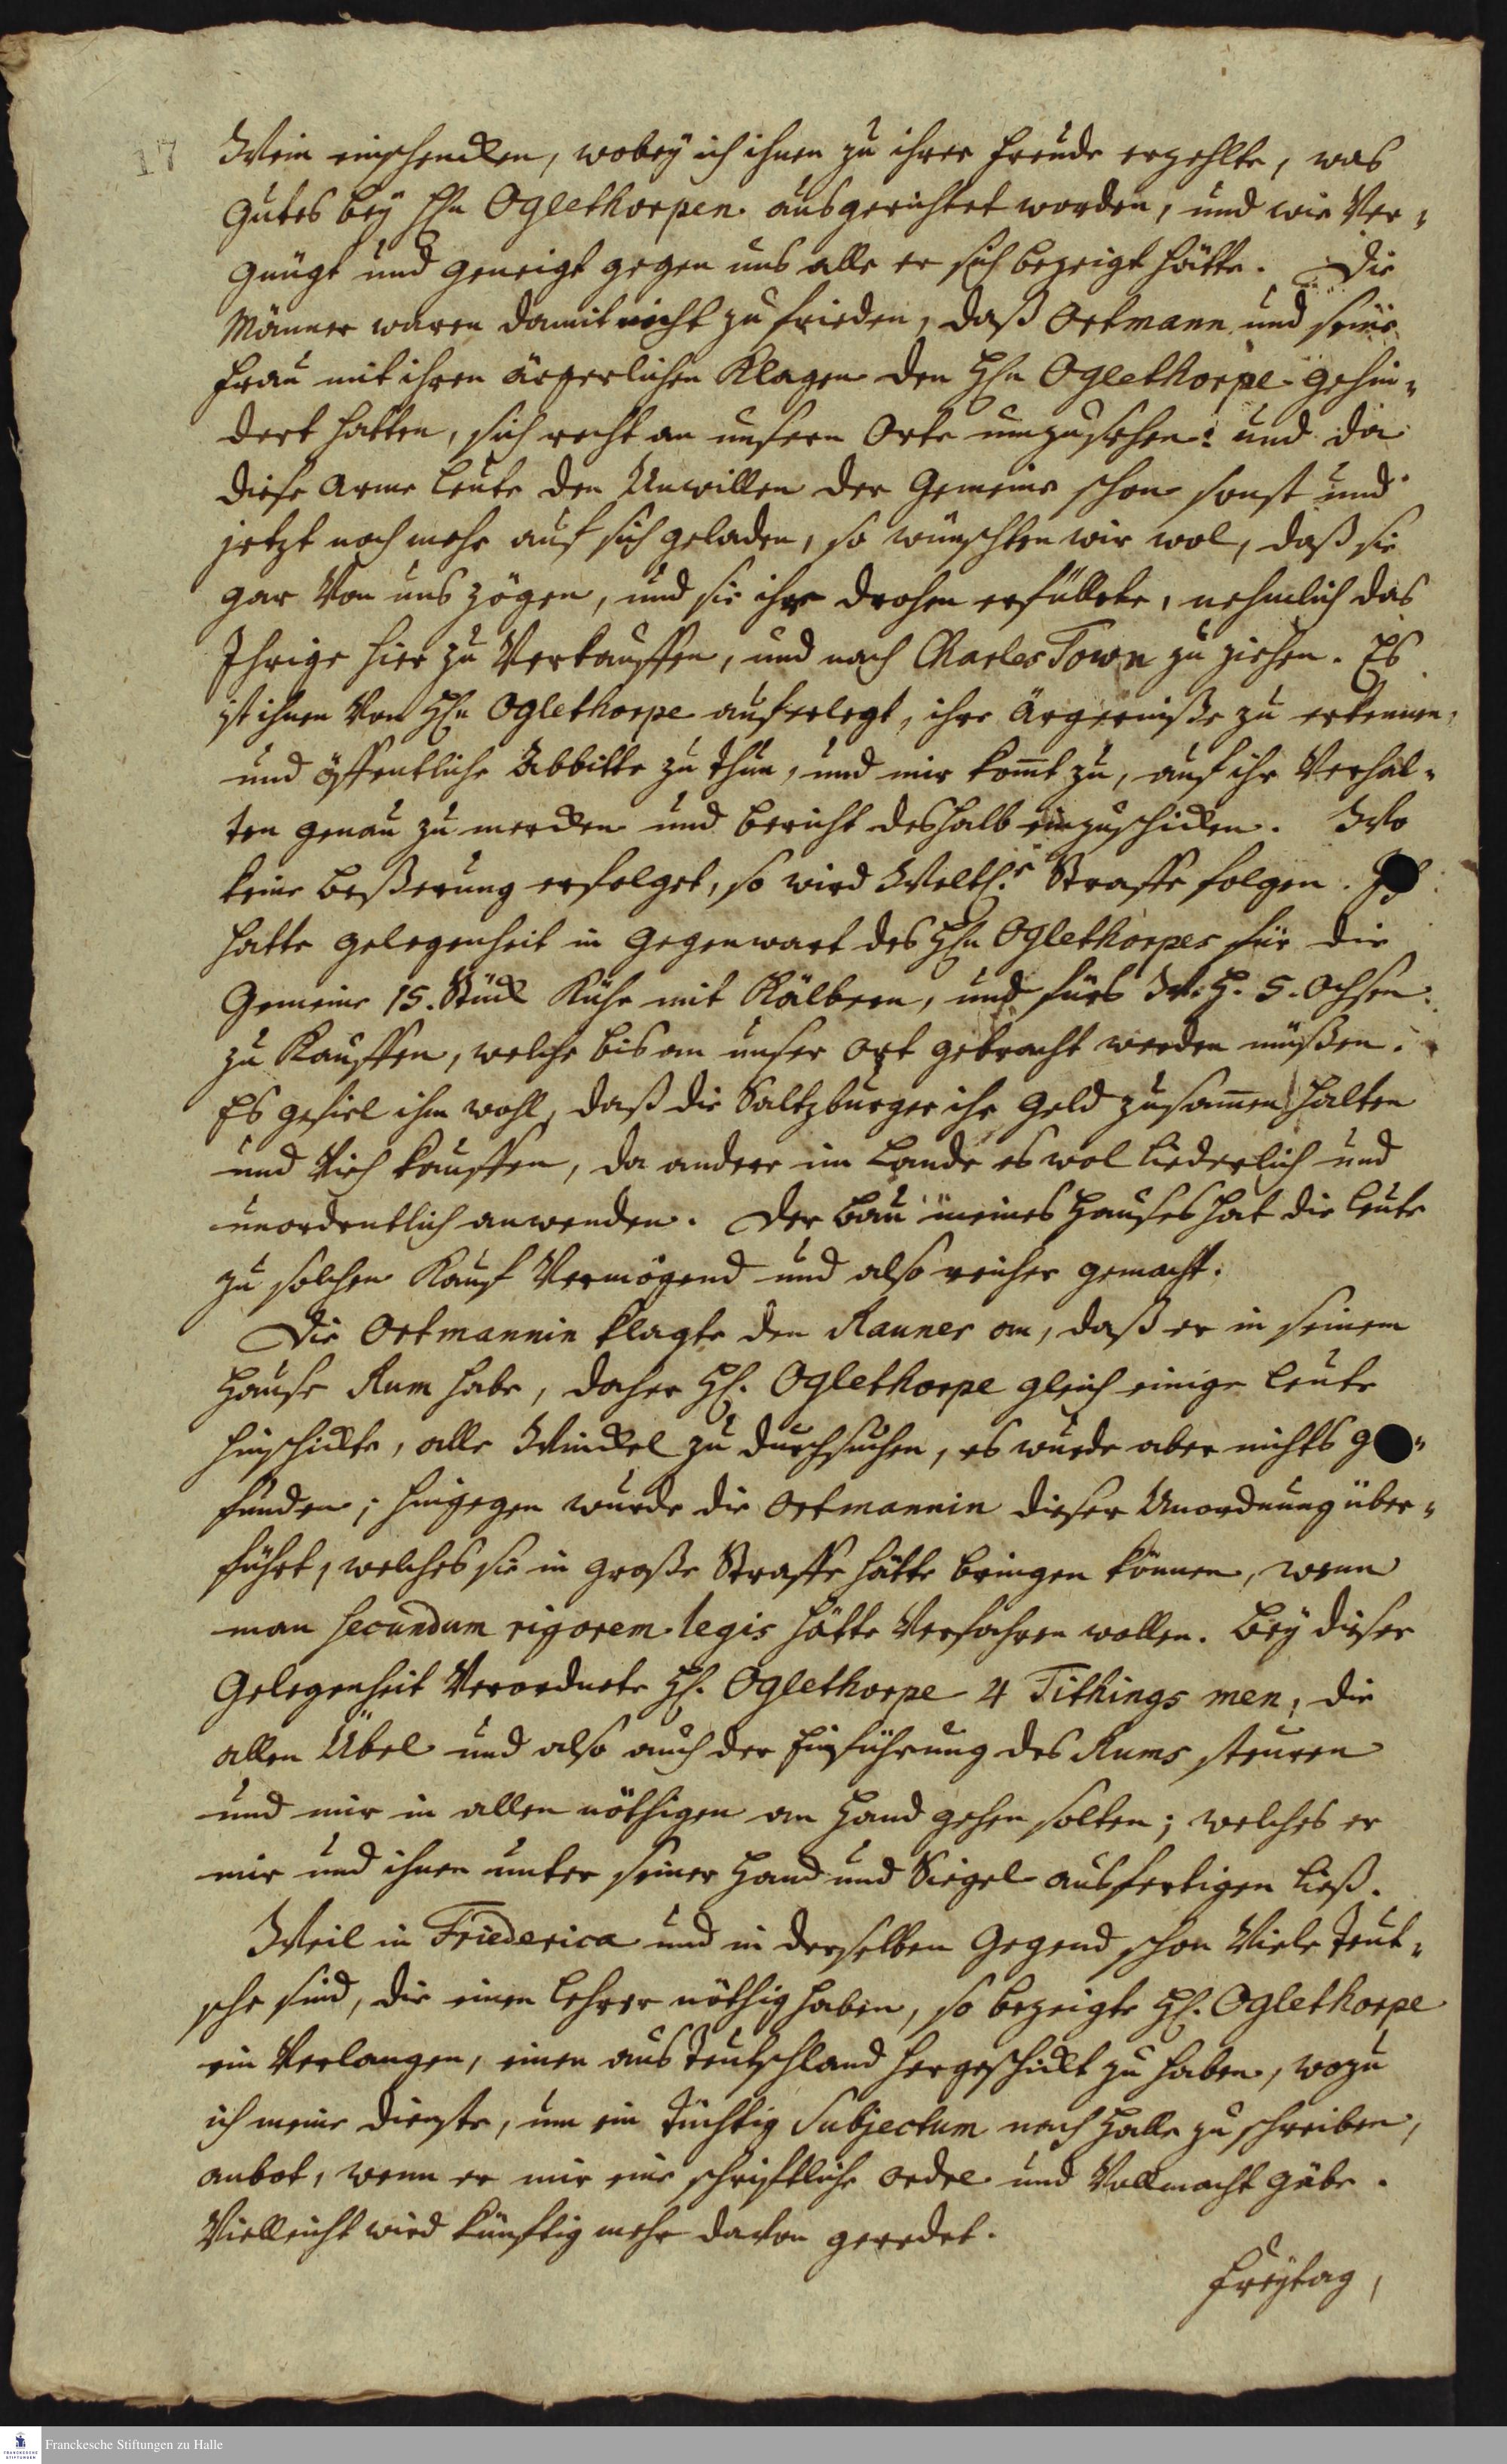 17
Wein einschencken, wobey ich ihnen zu ihrer Freude erzehlte, was
Gutes bey Hn Oglethorpen ausgerichtet worden, und wie Ver-
gnügt und geneigt gegen uns alle er sich bezeigt hätte. Die
Männer waren damit nicht zu frieden, daß Ortmann und seine
Frau mit ihren ärgerlichen Klagen den Hn Oglethorpe gehin-
dert hatten, sich recht an unsern Orte umzusehen: und da
diese arme Leute den Unwillen der Gemeine schon sonst und
jetzt noch mehr auf sich geladen, so wünschten wir wol, daß sie
gar Von uns zögen, und sie ihr drohen erfüllete, nehmlich das
Ihrige hier zu Verkauffen, und nach Charles Town zu ziehen. Es
ist ihnen Von Hn Oglethorpe auferlegt, ihre Ärgerniße zu erkennen,
und öffentliche Abbitte zu thun, und mir komt zu, auf ihr Verhal-
ten genau zu mercken und Bericht deshalb einzuschicken. Wo
keine Beßerung erfolget, so wird Weltl.e Straffe folgen.
hatte Gelegenheit in Gegenwart des Hn Oglethorpes für die
Gemeine 15. Stück Kühe mit Kälbern, und fürs W. H. 5. Ochsen
zu Kauffen, welche bis an unser Ort gebracht werden müßen.
Es gefiel ihm wohl, daß die Saltzburger ihr Geld zusamen halten
und Vieh kauffen, da andere im Lande es wol liederlich und
unordentlich anwenden. Der Bau meines Hauses hat die Leute
zu solchen Kauf Vermögend und also reicher gemacht.
Die Ortmannin klagte den Rauner an, daß er in seinem
Hause Rum habe, daher H. Oglethorpe gleich einige Leute
hinschickte, alle Winckel zu durchsuchen, es wurde aber nichts ge-
funden; hingegen wurde die Ortmannin dieser Unordnung über-
führt, welches sie in große Straffe hätte bringen können, wenn
man secundum rigorem legis hätte Verfahren wollen. Bey dieser
Gelegenheit Verordnete H. Oglethorpe 4 Tithings men, die
allen Übel und also auch der Einführung des Rums steuren
und mir in allen nöthigen an Hand gehen solten; welches er
mir und ihnen unter seiner Hand und Siegel ausfertigen ließ.
Weil in Friederica und in derselben Gegend schon Viele Teut-
sche sind, die einen Lehrer nöthig haben, so bezeigte H. Oglethorpe
ein Verlangen, einen aus Teutschland hergeschickt zu haben, wozu
ich meine Dienste, um ein tüchtig Subjectum nach Halle zu schreiben,
anbot, wenn er mir eine schriftliche Ordre und Vollmacht gäbe.
Vielleicht wird künftig mehr davon geredet.
Freytag,
Franckesche Stiftungen zu Halle